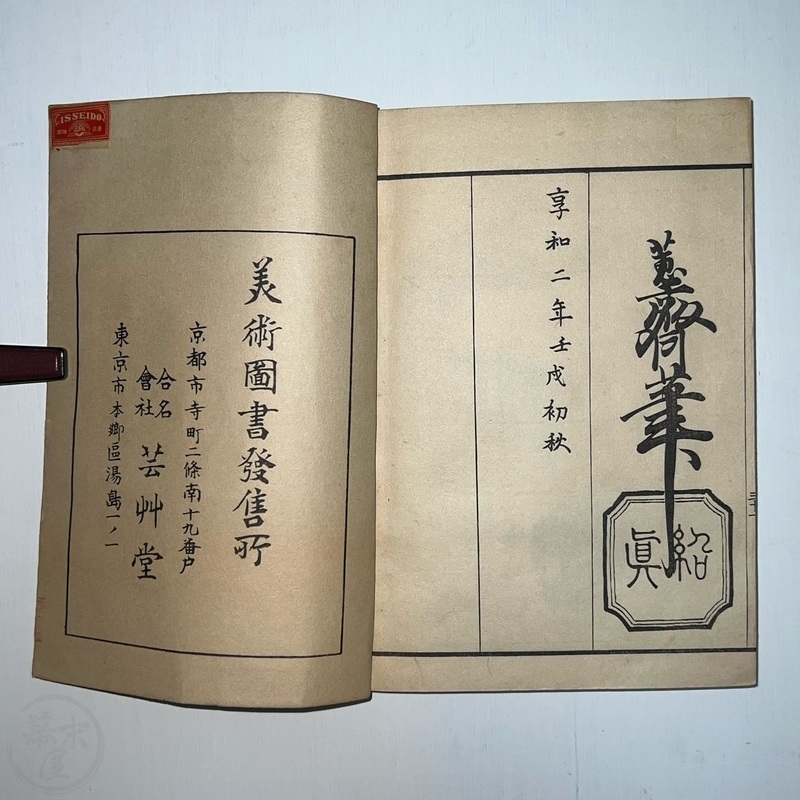 蕙齋筆
紹眞
享和二年壬戌初秋
美術圖書發售所
京都市寺町二條南十九番戶
合名會社 芸艸堂
東京市本鄕區湯島一ノ一
ISSEIDO
幕末屋